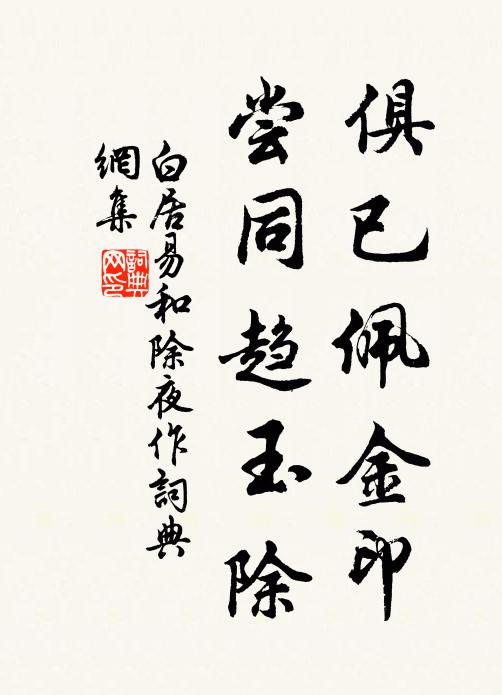 俱已佩金印
尝同趋玉除
白居易和除夜作詞典
網集
詞典
网印